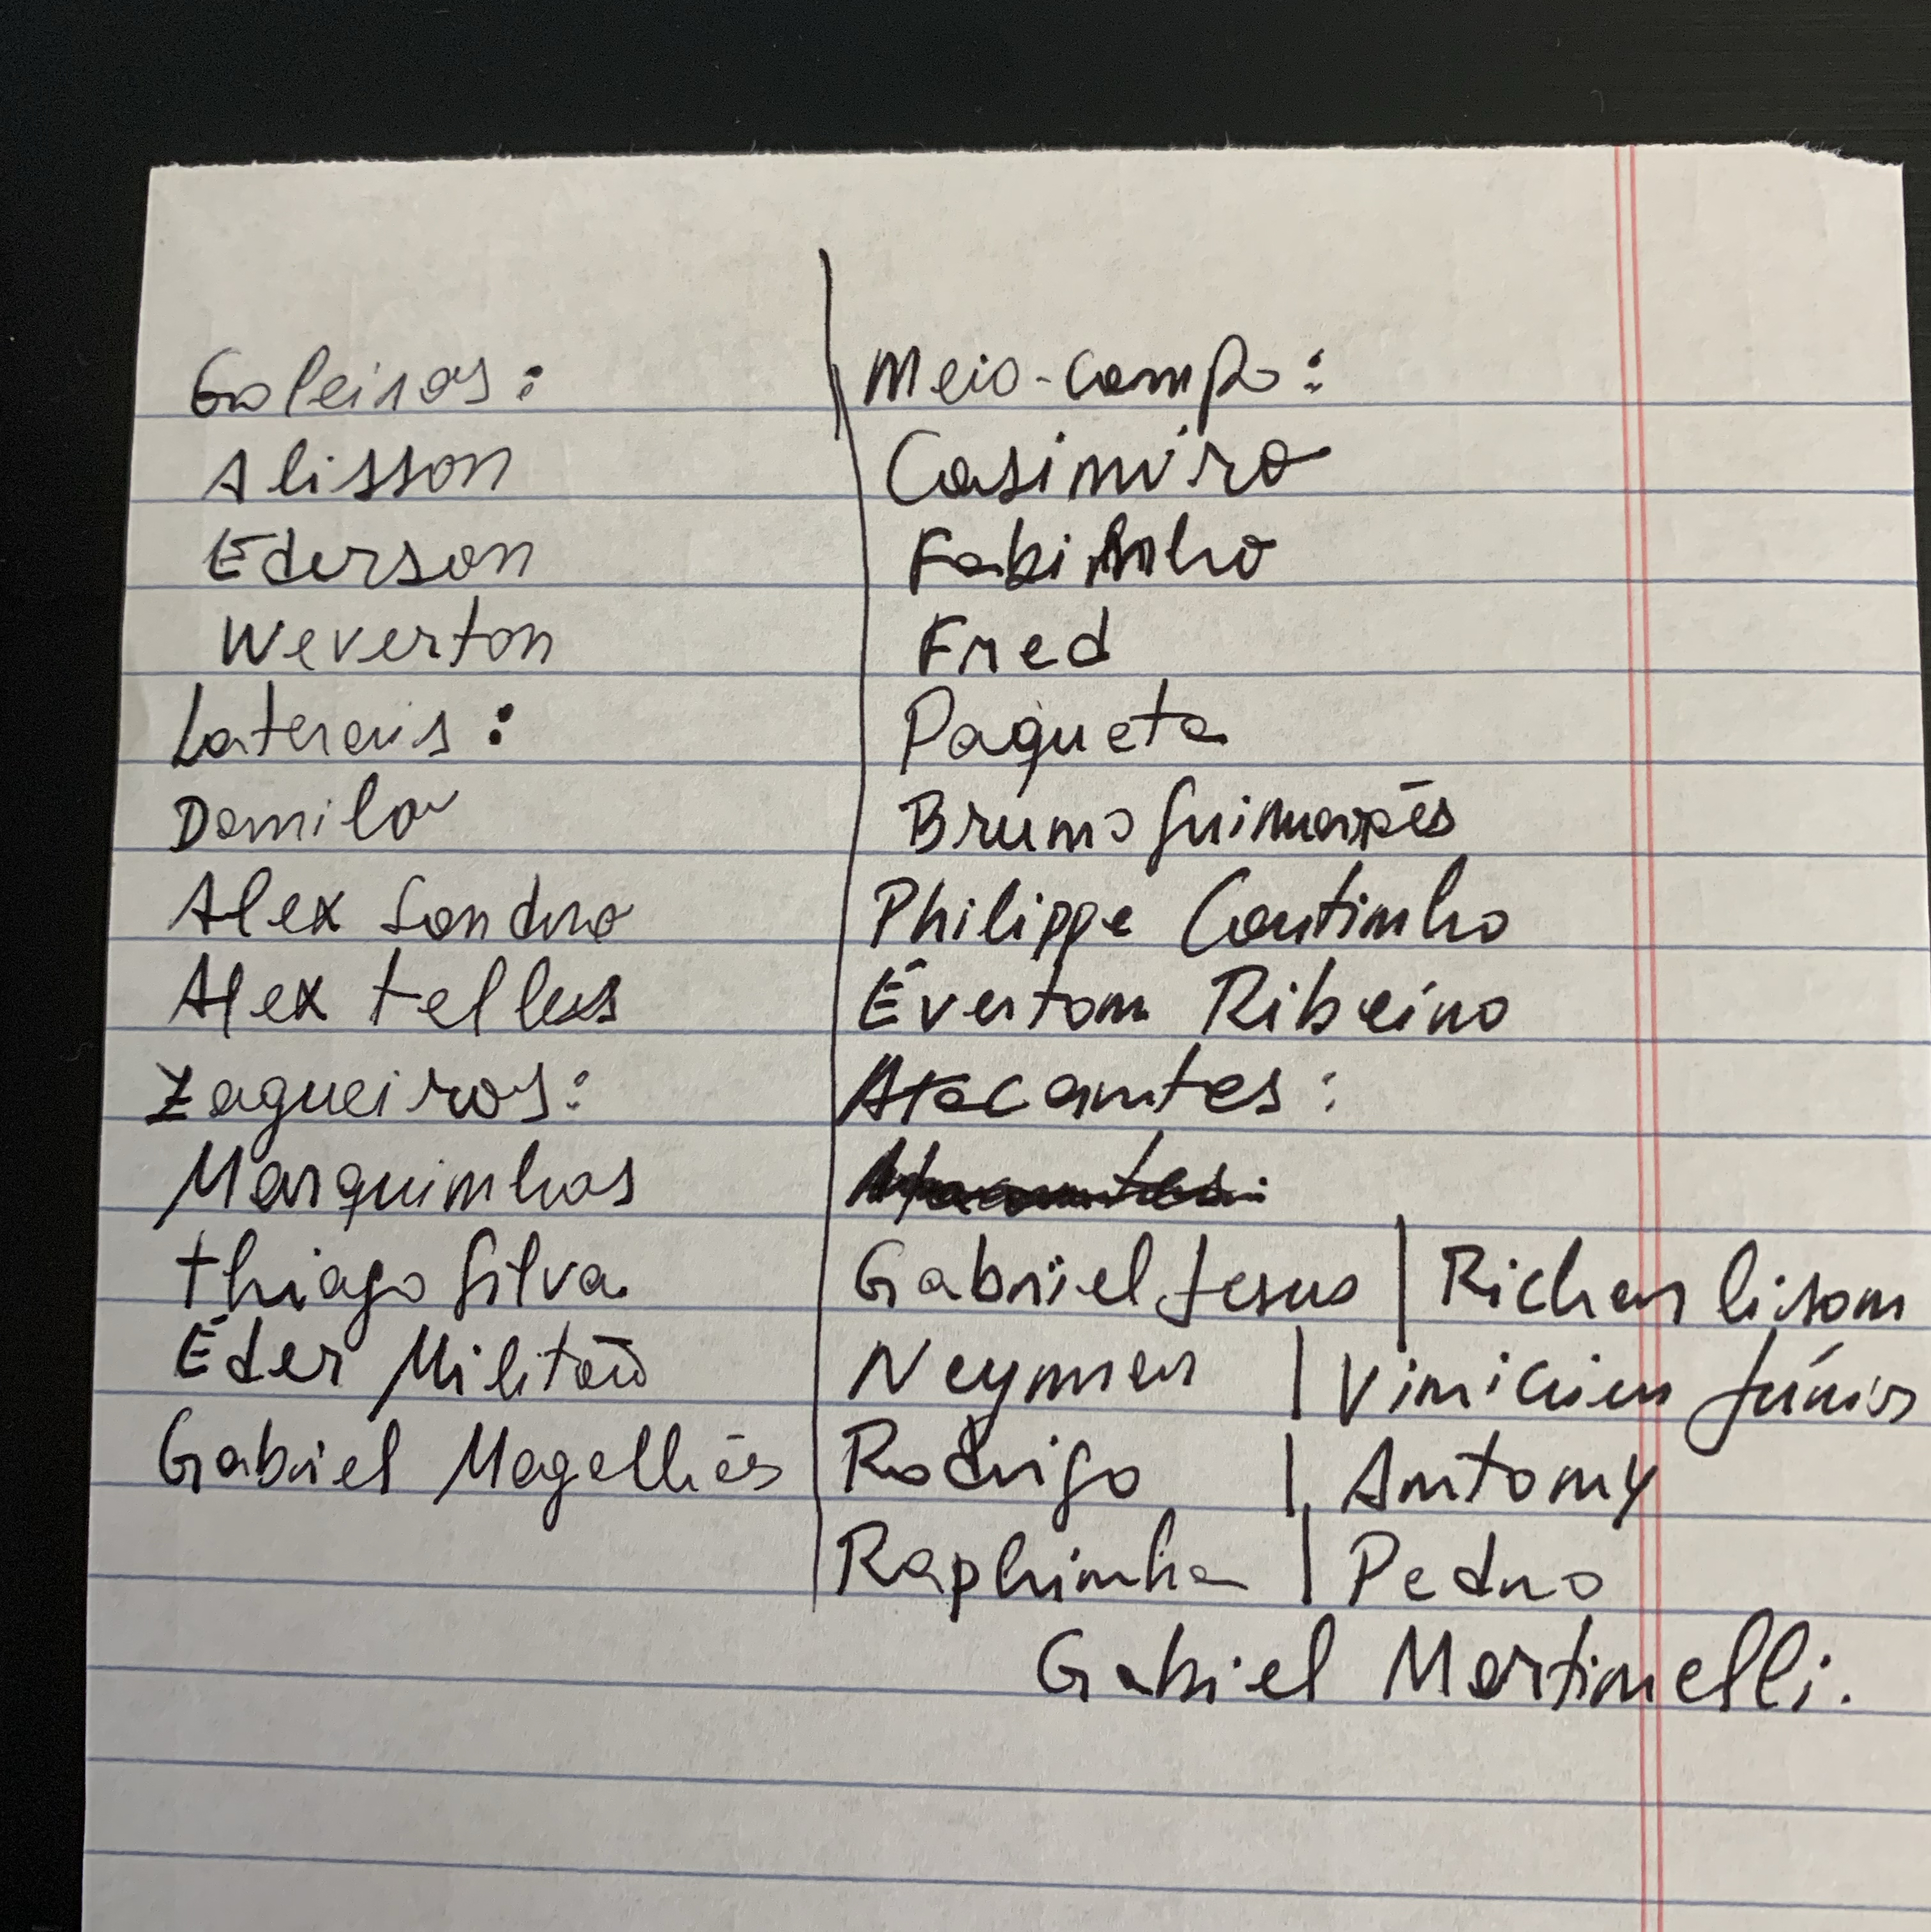 Goleiros:
Alisson
Ederson
Weverton
Laterais:
Danilo
Alex Sandro
Alex telles
Zagueiros:
Marquinhos
thiago Silva
Éder Militão
Gabriel Magalhães
Meio-campo:
Casimiro
Fabinho
Fred
Paqueta
Bruno Guimarães
Philippe Coutinho
Éverton Ribeiro
Atacantes:
Gabriel Jesus | Richarlison
Neymar | Vinicius Júnior
Rodrigo | Antony
Raphinha | Pedro
Gabriel Martinelli.